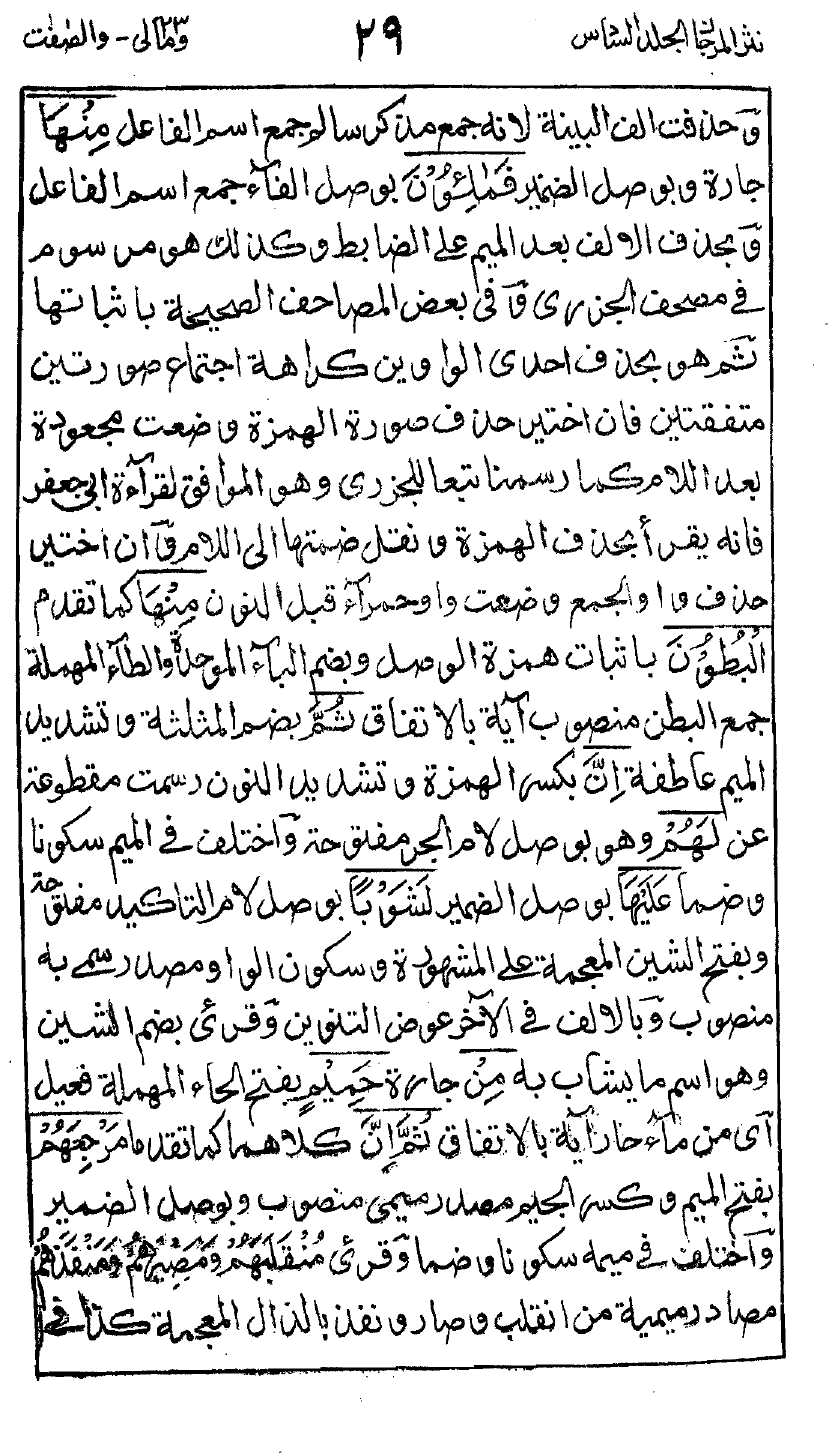 نثر المرجان الجلد السادس ٢٩ ومالى ٢٣ - والصٰفٰت
وَحذفت الف البينة لانه جمع مذكر سالم جمع اسم الفاعل مِنْهَا
جارة وبوصل الضمير فَمٰلِـُٔوْنَ بوصل الفاء جمع اسم الفاعل
وَبحذف الالف بعد الميم على الضابط وكذلك هو مرسوم
فى مصحف الجزرى وَفى بعض المصاحف الصحيحة باثباتها
ثم هو بحذف احدى الواوين كراهة اجتماع صورتين
متفقتين فان اختير حذف صورة الهمزة وضعت مجعودة
بعد اللام كما رسمنا تبعا للجزرى وهو الموافق لقرآءة ابى جعفر
فانه يقرأ بحذف الهمزة ونقل ضمتها الى اللام وَان اختير
حذف واو الجمع وضعت واو حمرآء قبل النون مِنْهَا كما تقدم
الْبُطُوْنَ باثبات همزة الوصل وبضم الباء الموحدة والطاء المهملة
جمع البطن منصوب آية بالاتفاق ثُمَّ بضم المثلثة وتشديد
الميم عاطفة اِنَّ بكسر الهمزة وتشديد النون رسمت مقطوعة
عن لَهُمْ وهو بوصل لام الجر مفتوحة وَاختلف فى الميم سكونا
وضما عَلَيْهَا بوصل الضمير لَشَوْبًا بوصل لام التاكيد مفتوحة
وبفتح الشين المعجمة على المشهودة وسكون الواو مصدر سمى به
منصوب وَبالالف فى الآخر عوض التنوين وَقرئ بضم الشين
وهو اسم ما يشاب به مِنْ جارة حَمِيْمٍ بفتح الحاء المهملة فعيل
آى من مآء حار آية بالاتفاق ثُمَّ اِنَّ كلاهما كما تقدما مَرْجِعَهُمْ
بفتح الميم وكسر الجيم مصدر ميمى منصوب وبوصل الضمير
وَاختلف فى ميمه سكونا وضما وَقرئ مُنْقَلَبَهُمْ وَمَصِيْرَهُمْ وَمَنْفَذَهُمْ
مصادر ميمية من انقلب وصار ونفذ بالذال المعجمة كذا فى